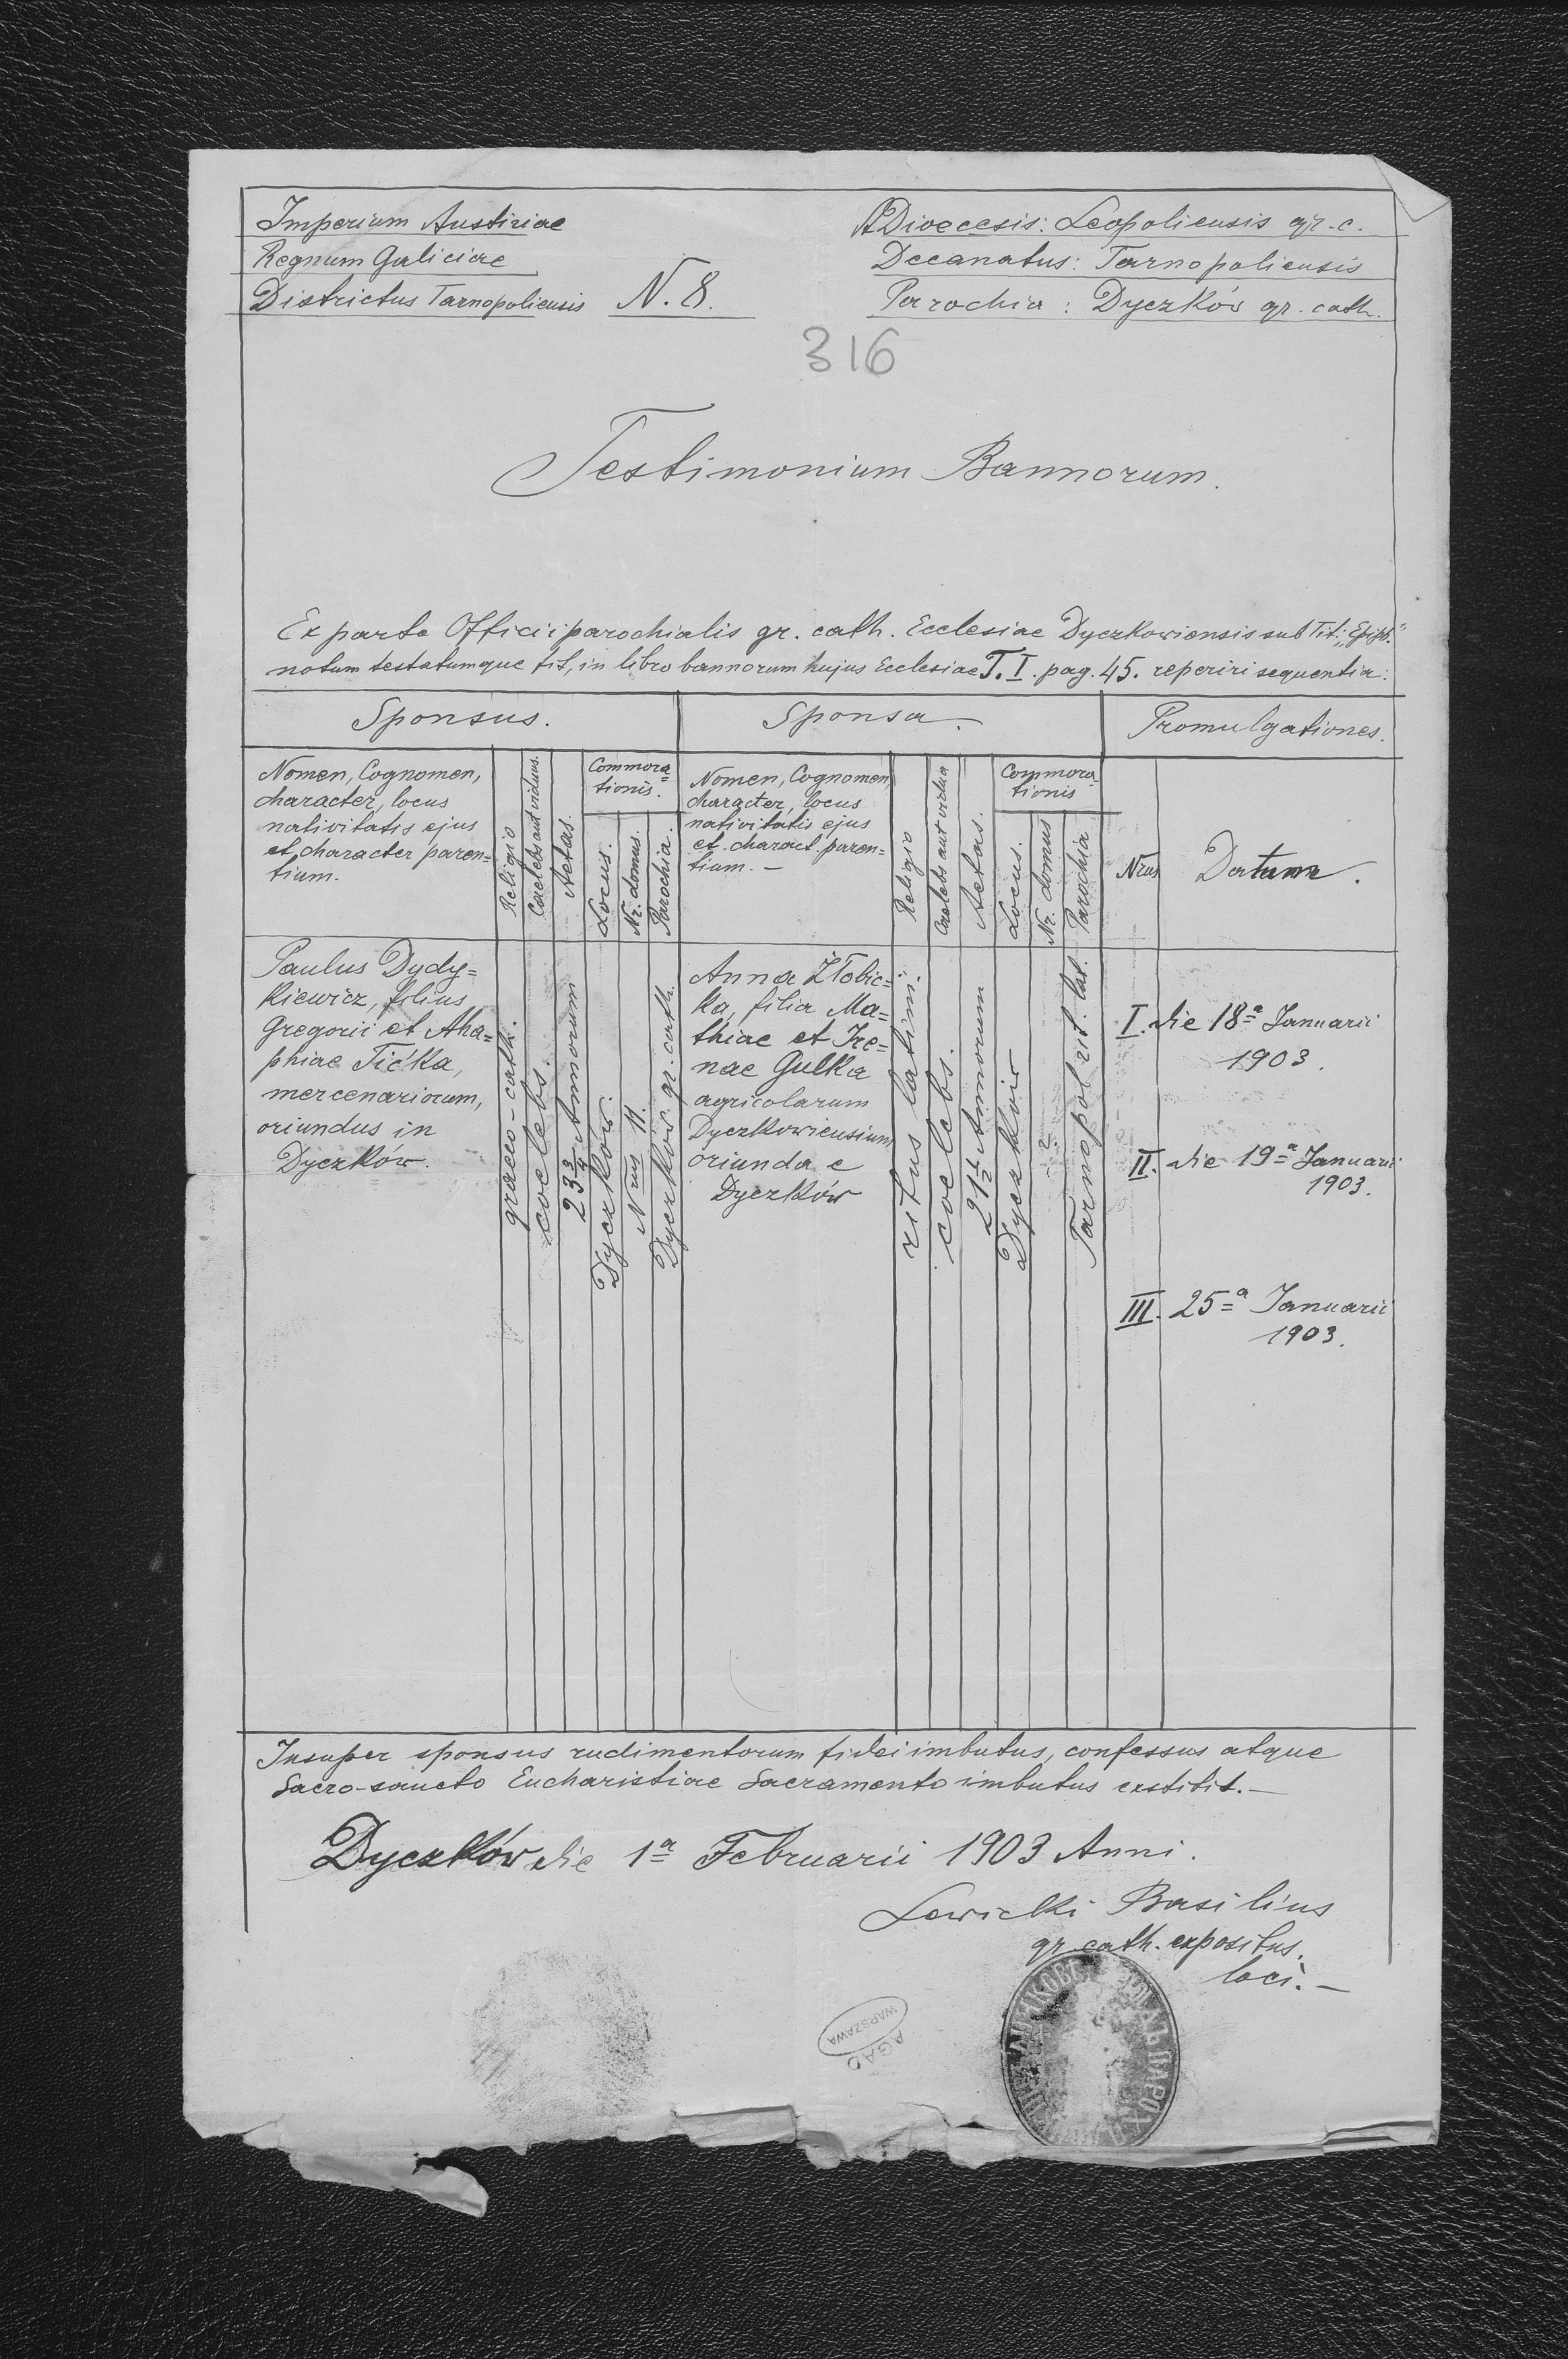 Imperium Austriae
Regnum Galiciae
Districtus Tarnopoliensis N. 8.
ADioecesis: Leopoliensis gr.-c.
Decanatus: Tarnopoliensis
Parochia: Dyczków gr. cath.
316
Testimonium Bannorum.
Ex parte Officii parochialis gr. cath. Ecclesiae Dyczkowiensis sub Tit: „Epiph."
notum testatumque fit, in libro bannorum hujus Ecclesiae T. I. pag. 45. reperiri sequentia:
Sponsus. Sponsa. Promulgationes.
Nomen, Cognomen,
character, locus
nativitatis ejus
et character paren=
tium.
Religio
Caelebs aut viduus.
Aetas.
Commora=
tionis.
Locus.
Nr. domus.
Parochia.
Nomen, Cognomen,
character, locus
nativitatis ejus
et charact. paren=
tium. –
Religio
Caelebs aut vidua
Aetas.
Commora=
tionis
Locus.
Nr. domus
Parochia
Nrus
Datum.
Paulus Dydy=
kiewicz, filius
Gregorii et Aha=
phiae Tićka,
mercenariorum,
oriundus in
Dyczków.
graeco-cath.
coelebs.
23 3/4 Annorum
Dyczków.
Nrus 11.
Dyczków gr. cath.
Anna Złobic=
ka, filia Ma=
thiae et Ire=
nae Gulka
agricolarum
Dyczkowiensium
oriunda e
Dyczków
ritus latini.
coelebs.
21 1/2 Annorum
Dyczków
?
Tarnopol rit. lat.
I. die 18=a Januarii
1903.
II. die 19=a Januarii
1903.
III. 25=a Januarii
1903.
Insuper sponsus rudimentorum fidei imbutus, confessus atque
Sacro-sancto Eucharistiae Sacramento imbutus exstitit. –
Dyczków die 1=a Februarii 1903 Anni.
Lewicki Basilius
gr. cath. expositus.
loci. –
AGAD
WARSZAWA